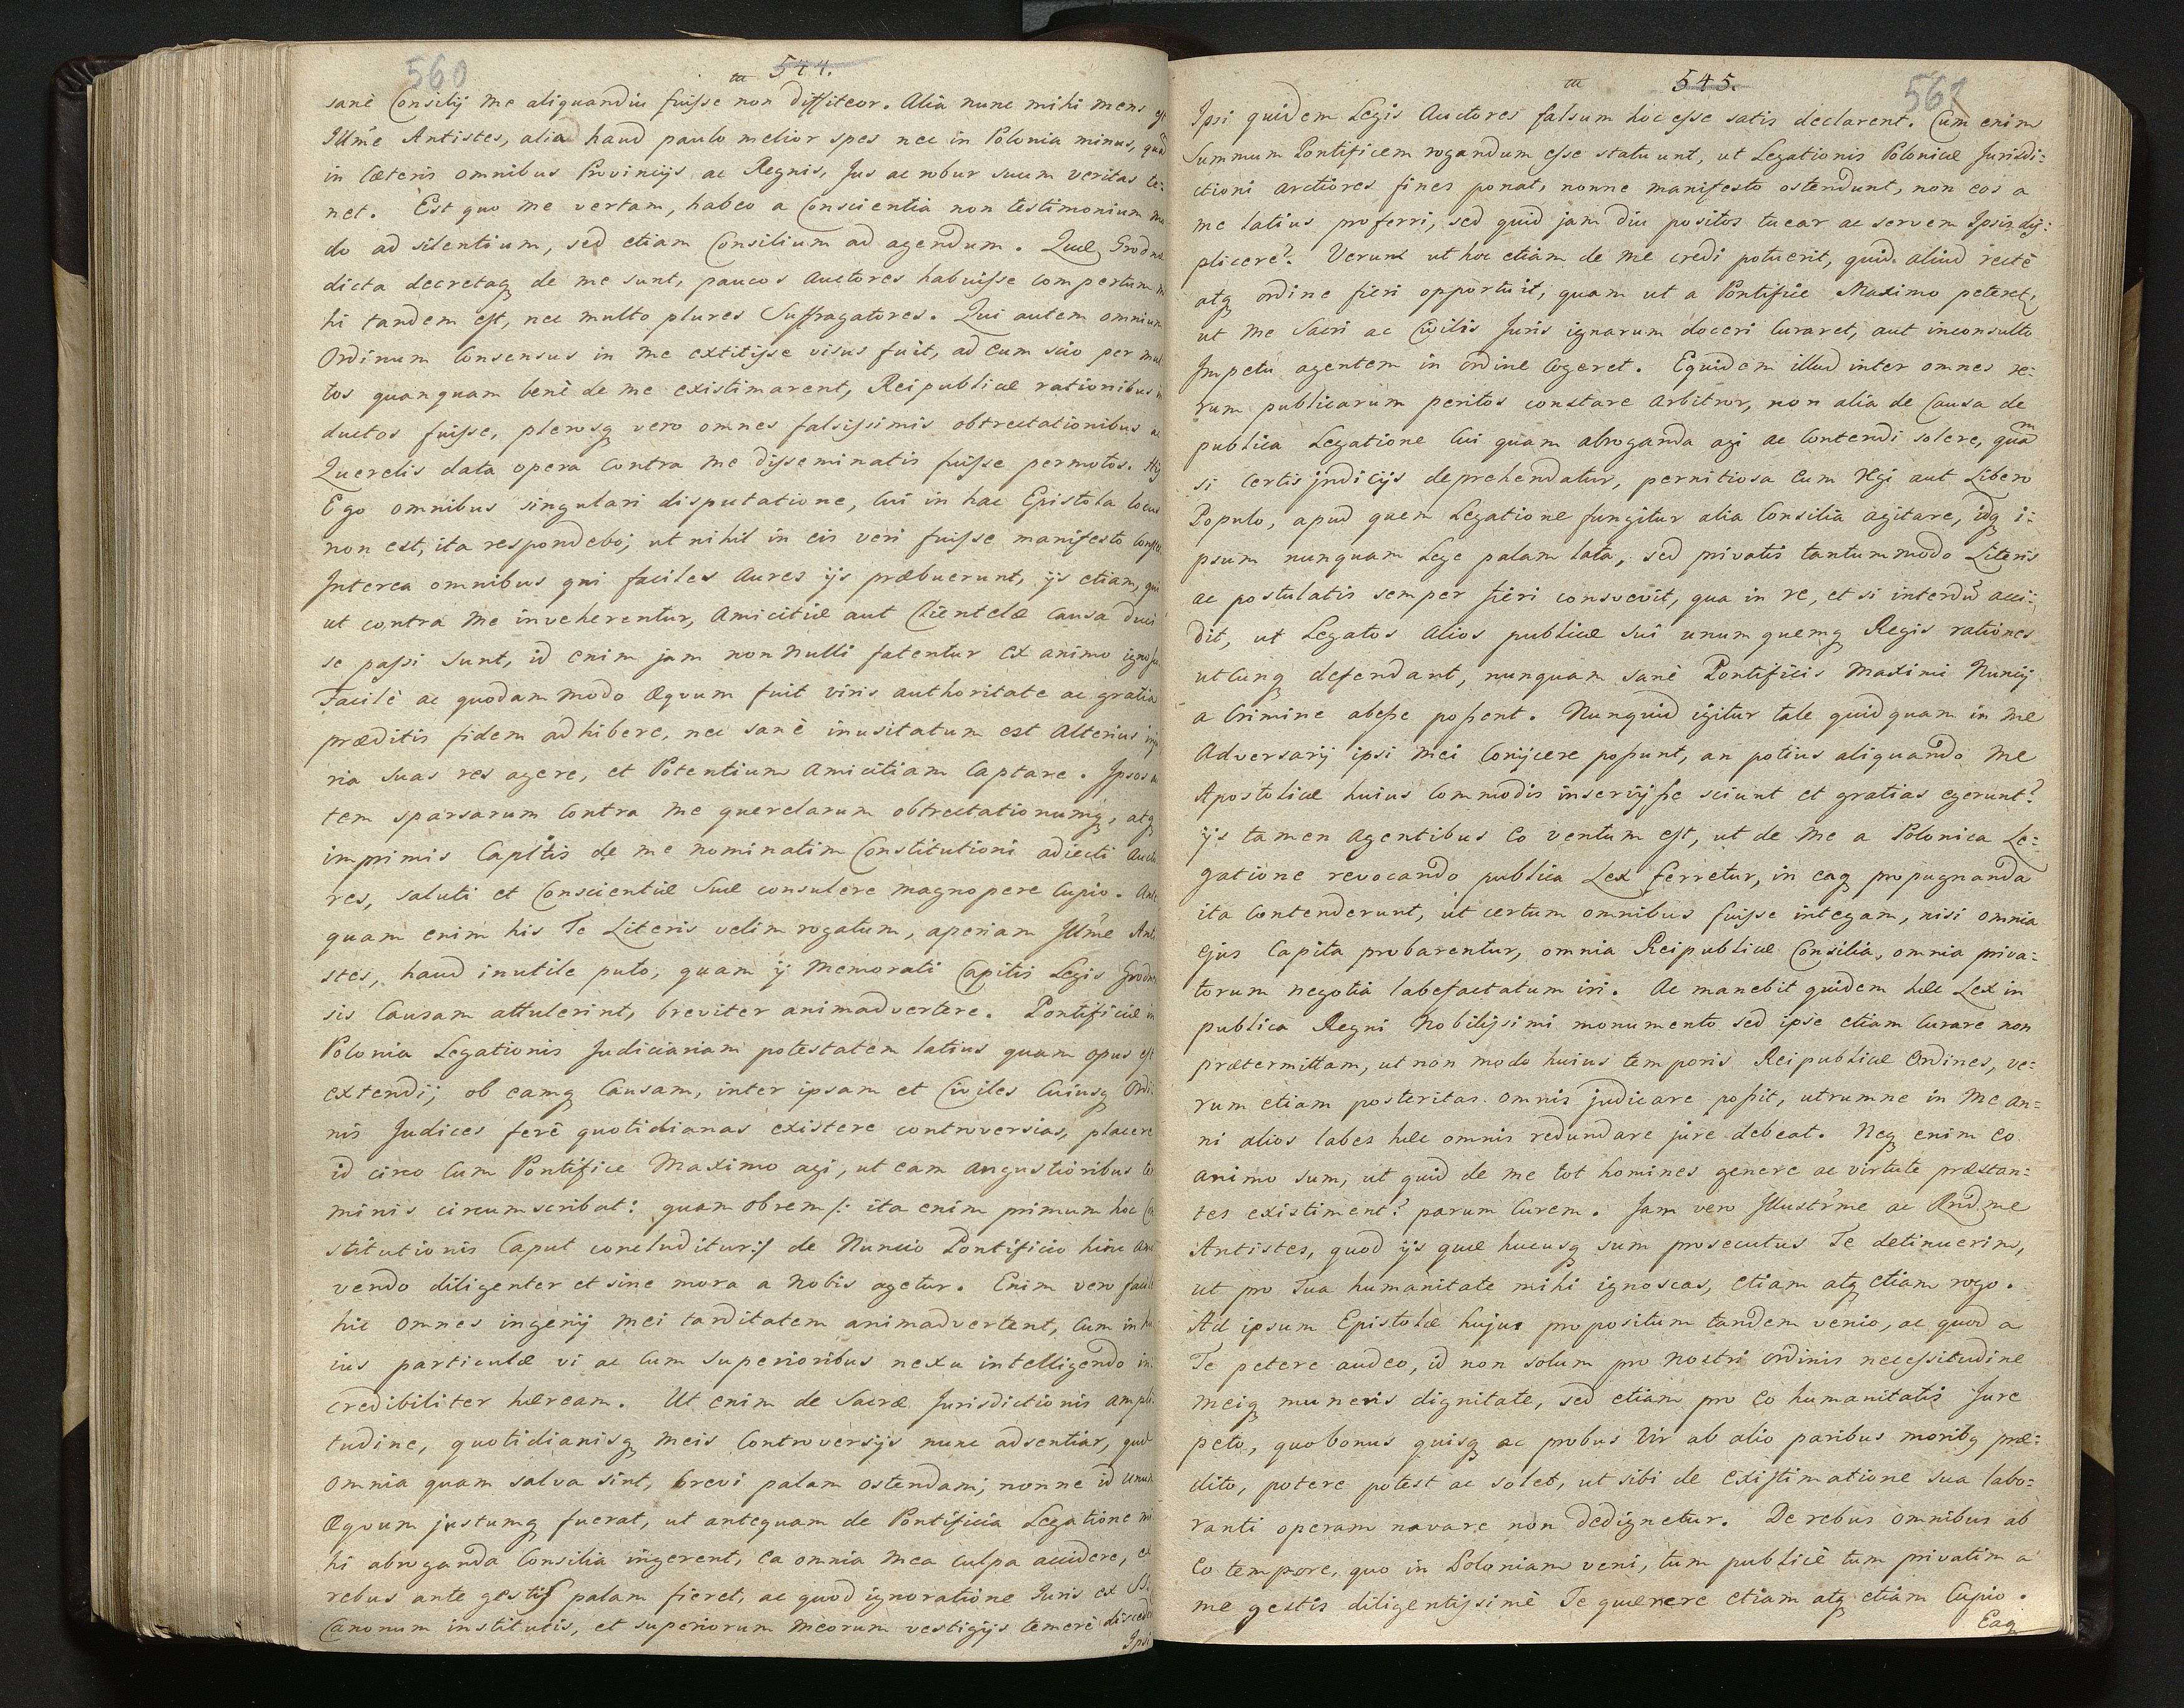 560
544.
sanè Consilij me aliquandiu fuisse non diffiteor. Alia nunc mihi mens est
Illm̃e Antistes, alia haud paulo melior spes nec in Polonia minus, quàm
in Cæteris omnibus Provincijs ac Regnis, Jus ac robur suum veritas te:
net. Est quo me vertam, habeo a Conscientia non testimonium mo
do ad silentium, sed etiam Consilium ad agendum. Quæ Grodnæ
dicta decretaq de me sunt, paucos Auctores habuisse compertum m
hi tandem est, nec multo plures Suffragatores. Qui autem omnium
Ordinum Consensus in me extitisse visus fuit, ad eum scio per mul
tos quanquam benè de me existimarent, Reipublicæ rationibus in
ductos fuisse, plerosq vero omnes falsissimis obtrectationibus ac
Querelis data opera Contra me disseminatis fuisse permotos. Hij
Ego omnibus singulari disputatione, Cui in hac Epistola locus
non est, ita respondebo; ut nihil in eis veri fuisse manifesto Constet
Interea omnibus qui faciles Aures ijs præbuerunt, ijs etiam, qui
ut contra me inveherentur, Amicitiæ aut Clientelæ Causa duci
se passi sunt, id enim jam nonnulli fatentur ex animo ignosco
Facilè ac quodam modo Æqvum fuit viris authoritate ac gratia
præditis fidem adhibere, nec sanè inusitatum est Alterius inju
ria suas res agere, et Potentium Amicitiam Captare. Ipsos au
tem sparsarum Contra me querelarum obtrectationumq, atq
imprimis Capitis de me nominatim Constitutioni adiecti Aucto
res, saluti et Conscientiæ Suæ consulere magnopere Cupio. Ante
quam enim his Te Literis velim rogatum, aperiam Illm̃e Anti
stes, haud inutile puto, quam ij memorati Capitis Legis Grodnen
sis Causam attulerint, breviter animadvertere. Pontificiæ in
Polonia Legationis Judiciariam potestatem latius quam opus est
extendi; ob eamq Causam, inter ipsam et Civiles Cuiusq Ordi:
nis Judices ferè quotidianas existere controversias, placere
id circo Cum Pontifice Maximo agi, ut eam angustioribus ter
minis circumscribat: quam obrem /: ita enim primum hoc Co
stitutionis Caput concluditur :/ de Nuncio Pontificio hinc amo
vendo diligenter et sine mora a Nobis agetur. Enim vero facilè
hic omnes ingenij mei tarditatem animadvertent, Cum in hu
ius particulæ vi ac Cum Superioribus nexu intelligendo in:
credibiliter hæream. Ut enim de Sacræ Jurisdictionis ampli
tudine, quotidianisq meis Controversijs nunc adsentiar, quæ
omnia quam salva sint, brevi palam ostendam; nonne id unum
Æqvum justumq fuerat, ut antequam de Pontificia Legatione mi
hi abroganda Consilia ingererent, ea omnia mea culpa accidere, ex
rebus ante gestis palam fieret, ac quod ignoratione Juris ex SS.
Canonum institutis, et superiorum meorum vestigijs temerè discedere
Ipsi
545.
561
Ipsi quidem Legis Auctores falsum hoc esse satis declarent. Cum enim
Summum Pontificem rogandum esse statuunt, ut Legationis Polonicæ Jurisdi:
ctioni arctiores fines ponat, nonne manifesto ostendunt, non eos a
me latius proferri, sed quid jam diu positos tuear ac servem Ipsis dis:
plicere? Verum ut hoc etiam de me credi potuerit, quid aliud rectè
atq ordine fieri opportuit, quam ut a Pontifice Maximo peteret,
ut me Sacri ac Civilis Juris ignarum doceri Curaret, aut inconsulto
Impetu agentem in ordine Cogeret. Equidem illud inter omnes re:
rum publicarum peritos constare Arbitror, non alia de Causa de
publica Legatione Cui quam abroganda agi ac Contendi solere, quam
si Certis jndicijs deprehendatur, pernitiosa Cum Regi aut Libero
Populo, apud quem Legatione fungitur alia Consilia agitare, idq i:
psum nunquam Lege palam lata, sed privatis tantummodo Literis
ac postulatis semper fieri consvevit, qua in re, et si interdũ acci:
dit, ut Legatos Alios publicæ Sui unumquemq Regis rationes
utCunq defendant, nunquam Sanè Pontificis Maximi Nuncij
a Crimine abesse possent. Nunquid igitur tale quidquam in me
Adversarij ipsi mei Conijcere possunt, an potius aliquando me
Apostolicæ huius Commodis inservijsse sciunt et gratias egerunt?
ijs tamen Agentibus Eo ventum est, ut de me a Polonica Le:
gatione revocando publica Lex ferretur, in eaq propugnanda
ita Contenderunt, ut certum omnibus fuisse integam, nisi omnia
ejus Capita probarentur, omnia Reipublicæ Consilia, omnia priva:
torum negotia labefactatum iri. Ac manebit quidem hæc Lex in
publica Regni Nobilissimi monumento sed ipse etiam Curare non
prætermittam, ut non modo huius temporis Reipublicæ Ordines, ve:
rum etiam posteritas omnis judicare possit, utrumne in me an:
ni alios labes hæc omnis redundare jure debeat. Neq enim Eo
animo sum, ut quid de me tot homines genere ac virtute præstan:
tes existiment? parum Curem. Jam vero Illustr̃me ac Rñdme
Antistes, quod ijs quæ hucusq sum prosecutus Te detinuerim,
ut pro Tua humanitate mihi ignoscas, etiam atq etiam rogo.
Ad ipsum Epistolæ hujus propositum tandem venio, ac quod a
Te petere audeo, id non solum pro nostri ordinis necessitudine
meiq muneris dignitate, sed etiam pro Eo humanitatis Jure
peto, quo bonus quisq ac probus Vir ab alio paribus moribq præ:
dito, potere potest ac solet, ut sibi de Existimatione sua labo:
ranti operam navare non dedignetur. De rebus omnibus ab
Eo tempore, quo in Poloniam veni, tum publicè tum privatim a
me gestis diligentissimè Te quærere etiam atq etiam Cupio.
Eaq